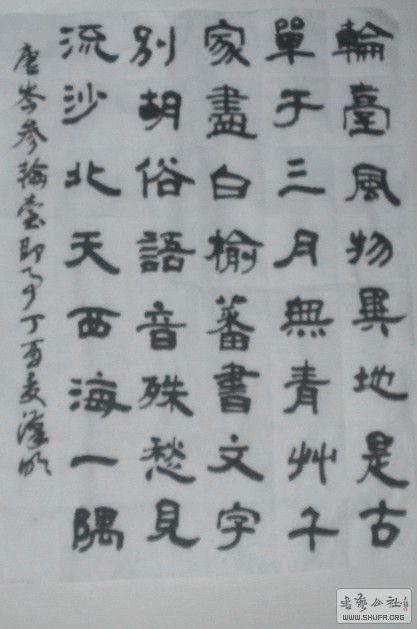 輪臺風物異地是古
單于三月無青艸千
家盡白榆蕃書文字
別胡俗語音殊愁見
流沙北天西海一隅
唐岑參輪臺即事丁酉夏
书艺公社
WWW.SHUFA.ORG